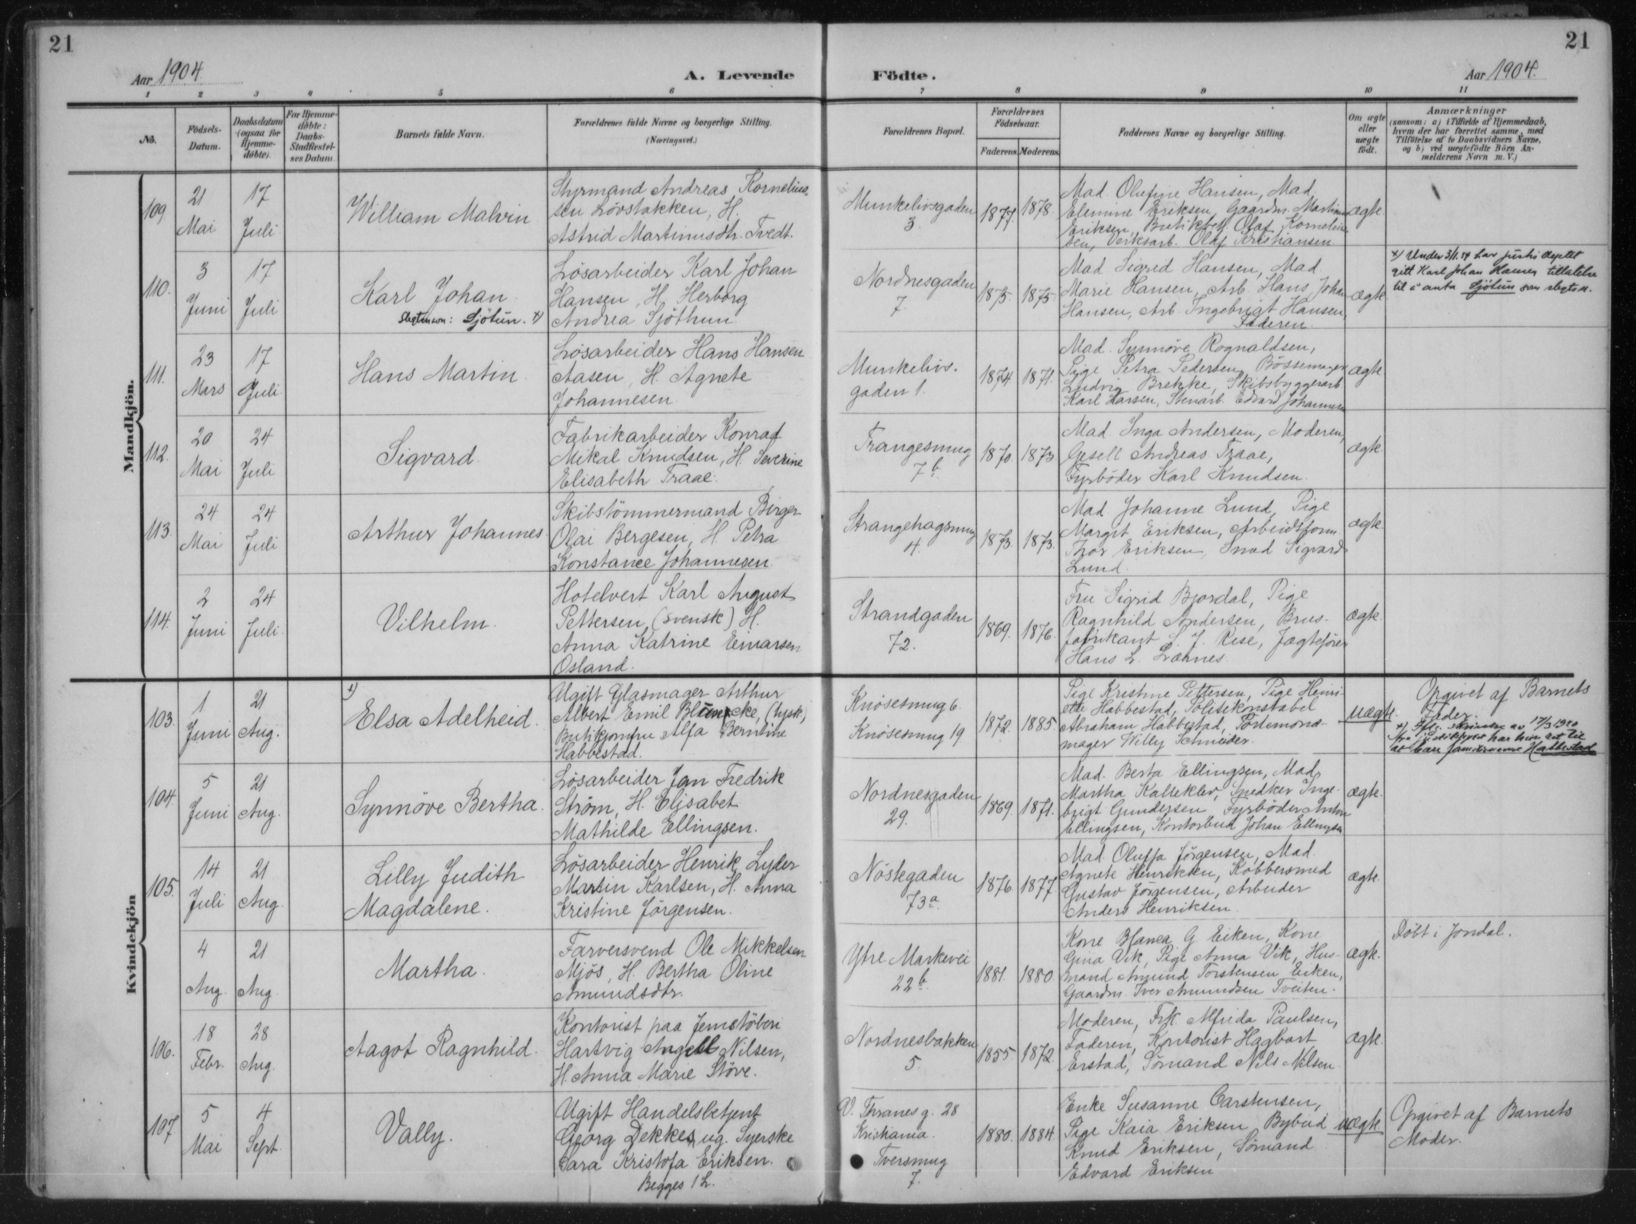 21
21
Aar 1904.
A. Levende
Födte.
Aar 1904.
1 2 3 4 5 6 7 8 9 10 11
No.
Födsels-
Datum.
Daabsdatum
(ogsaa for
Hjemme-
döbte).
For Hjemme-
döbte:
Daabs-
Stadfæstel-
ses Datum.
Barnets fulde Navn.
Forældrenes fulde Navne og borgerlige Stilling.
(Næringsvei.)
Forældrenes Bopæl.
Forældrenes
Födselsaar.
Faderens. Moderens.
Faddernes Navne og borgerlige Stilling.
Om ægte
eller
uægte
födt.
Anmærkninger
(saasom: a) i Tilfælde af Hjemmedaab,
hvem der har forrettet samme, med
Tilföielse af to Daabsvidners Navne,
og b) ved uægtefödte Börn An-
melderens Navn m. V.)
Mandkjön.
109.
21
Mai
17
Juli
William Malvin
Styrmand Andreas Kornelius-
sen Lövstakken, H.
Astrid Martinusdtr. Tvedt.
Munkelivsgaden
3.
1877 1878.
Mad. Olufine Hansen, Mad.
Elemine Eriksen, Gaardm. Martinus
Eriksen, Butikbetj. Olaf Kornelius-
sen, Verksarb. Olaf Kristiansen
ægte
110.
3
Juni
17
Juli
Karl Johan.
Slegtnavn: Sjötun. x)
Lösarbeider Karl Johan
Hansen, H. Herborg
Andrea Sjöthun
Nordnesgaden
7.
1875. 1875.
Mad. Sigrid Hansen, Mad
Marie Hansen, Arb. Hans Johan
Hansen, Arb. Ingebrigt Hansen,
Faderen
ægte
x) Under 3/1. 24 har justisdeptet
gitt Karl Johan Hansen tillatelse
til å anta Sjötun som slegtsn.
111.
23
Mars
17
Juli
Hans Martin.
Lösarbeider Hans Hansen
Aasen, H. Agnete
Johannesen
Munkelivs.
gaden 1.
1874 1871.
Mad. Synnöve Rognaldsen,
Pige Petra Pedersen, Bössemager
Ludvig Bretzke, Skibsbyggerarb
Karl Larsen, Stenarb. Edvard Johannesen
ægte
112.
20
Mai
24
Juli
Sigvard.
Fabrikarbeider Konrad
Mikal Knudsen, H. Severine
Elisabeth Traae.
Trangesmug
7 b.
1870 1873
Mad. Inga Andersen, Moderen,
Gesell Andreas Traae,
Fyrböder Karl Knudsen.
ægte
113.
24
Mai
24
Juli
Arthur Johannes
Skibstömmermand Birger
Olai Bergesen, H. Petra
Konstance Johannesen
Strangehagsmug
4.
1873. 1873.
Mad Johanne Lund, Pige
Margit Eriksen, Arbeidsform.
Thor Eriksen, Smed Sigvard
Lund.
ægte.
114.
2
Juni
24
Juli
Vilhelm.
Hotelvert Karl August
Pettersen, (svensk) H.
Anna Katrine Einarsen
Osland.
Strandgaden
72.
1869. 1876.
Fru Sigrid Bjordal, Pige
Ragnhild Andersen, Brus-
fabrikant S. J. Vese, Jægtefører
Hans L. Lærnes.
ægte.
Kvindekjön
103.
1
Juni
21
Aug.
x)
Elsa Adelheid.
Ugift Glasmager Arthur
Albert Emil Blümcke, (tysk)
Butikjomfru Alfa Berntine
Habbestad.
Knösesmug 6.
Knösesmug 19
1872. 1885
Pige Kristine Pettersen, Pige Henri-
ette Habbestad, Politikonstabel
Abraham Habbestad, Portemonæ-
mager Willy Schnieder.
uægte.
Opgivet af Barnets
Fader.
104.
5
Juni
21
Aug.
Synnöve Bertha.
Lösarbeider Jan Fredrik
Ström, H. Elisabet
Mathilde Ellingsen.
Nordnesgaden
29.
1869. 1871.
Mad. Berta Ellingsen, Mad.
Martha Kalleklev, Snedker Inge-
brigt Gundersen, Fyrböder Anton
Ellingsen, Kontorbud Johan Ellingsen
ægte.
105.
14
Juli
21
Aug.
Lilly Judith
Magdalene.
Lösarbeider Henrik Lyder
Martin Karlsen, H. Anna
Kristine Jörgensen.
Nöstegaden
73 a.
1876. 1877
Mad Oluffa Jörgensen, Mad.
Agnete Henriksen, Kobbersmed
Gustav Jörgensen, Arbeider
Anders Henriksen.
ægte.
4
Aug.
21
Aug.
Martha.
Farversvend Ole Mikkelsen
Mjös, H. Bertha Oline
Amundsdtr.
Ytre Markevei
22 b.
1881. 1880
Kone Blanca G. Eiken, Kone
Gina Vik, Pige Anna Vik, Hus-
mand Amund Torstensen Eiken,
Gaardm. Iver Amundsen Tveiten.
ægte.
Döbt i Jondal.
106.
18
Febr.
28
Aug.
Aagot Ragnhild.
Kontorist paa Jernstöberi
Hartvig Angell Nilsen,
H. Anna Marie Stöve.
Nordnesbakken
5.
1855 1872
Moderen, Frk. Alfrida Paulsen,
Faderen, Kontorist Hagbart
Erstad, Sömand Nils Nilsen
ægte.
107.
5
Mai
4
Sept.
Vally.
Ugift Handelsbetjent
Georg Dekkes, ug. Syerske
Cara Kristofa Eriksen.
Begges 1 L.
V. Thranes g. 28
Kristiania.
Tversmug
7.
1880. 1884
Enke Susanne Carstensen,
Pige Kaia Eriksen, Bybud
Knud Eriksen, Sömand
Edvard Eriksen
uægte
Opgivet af Barnets
Moder.